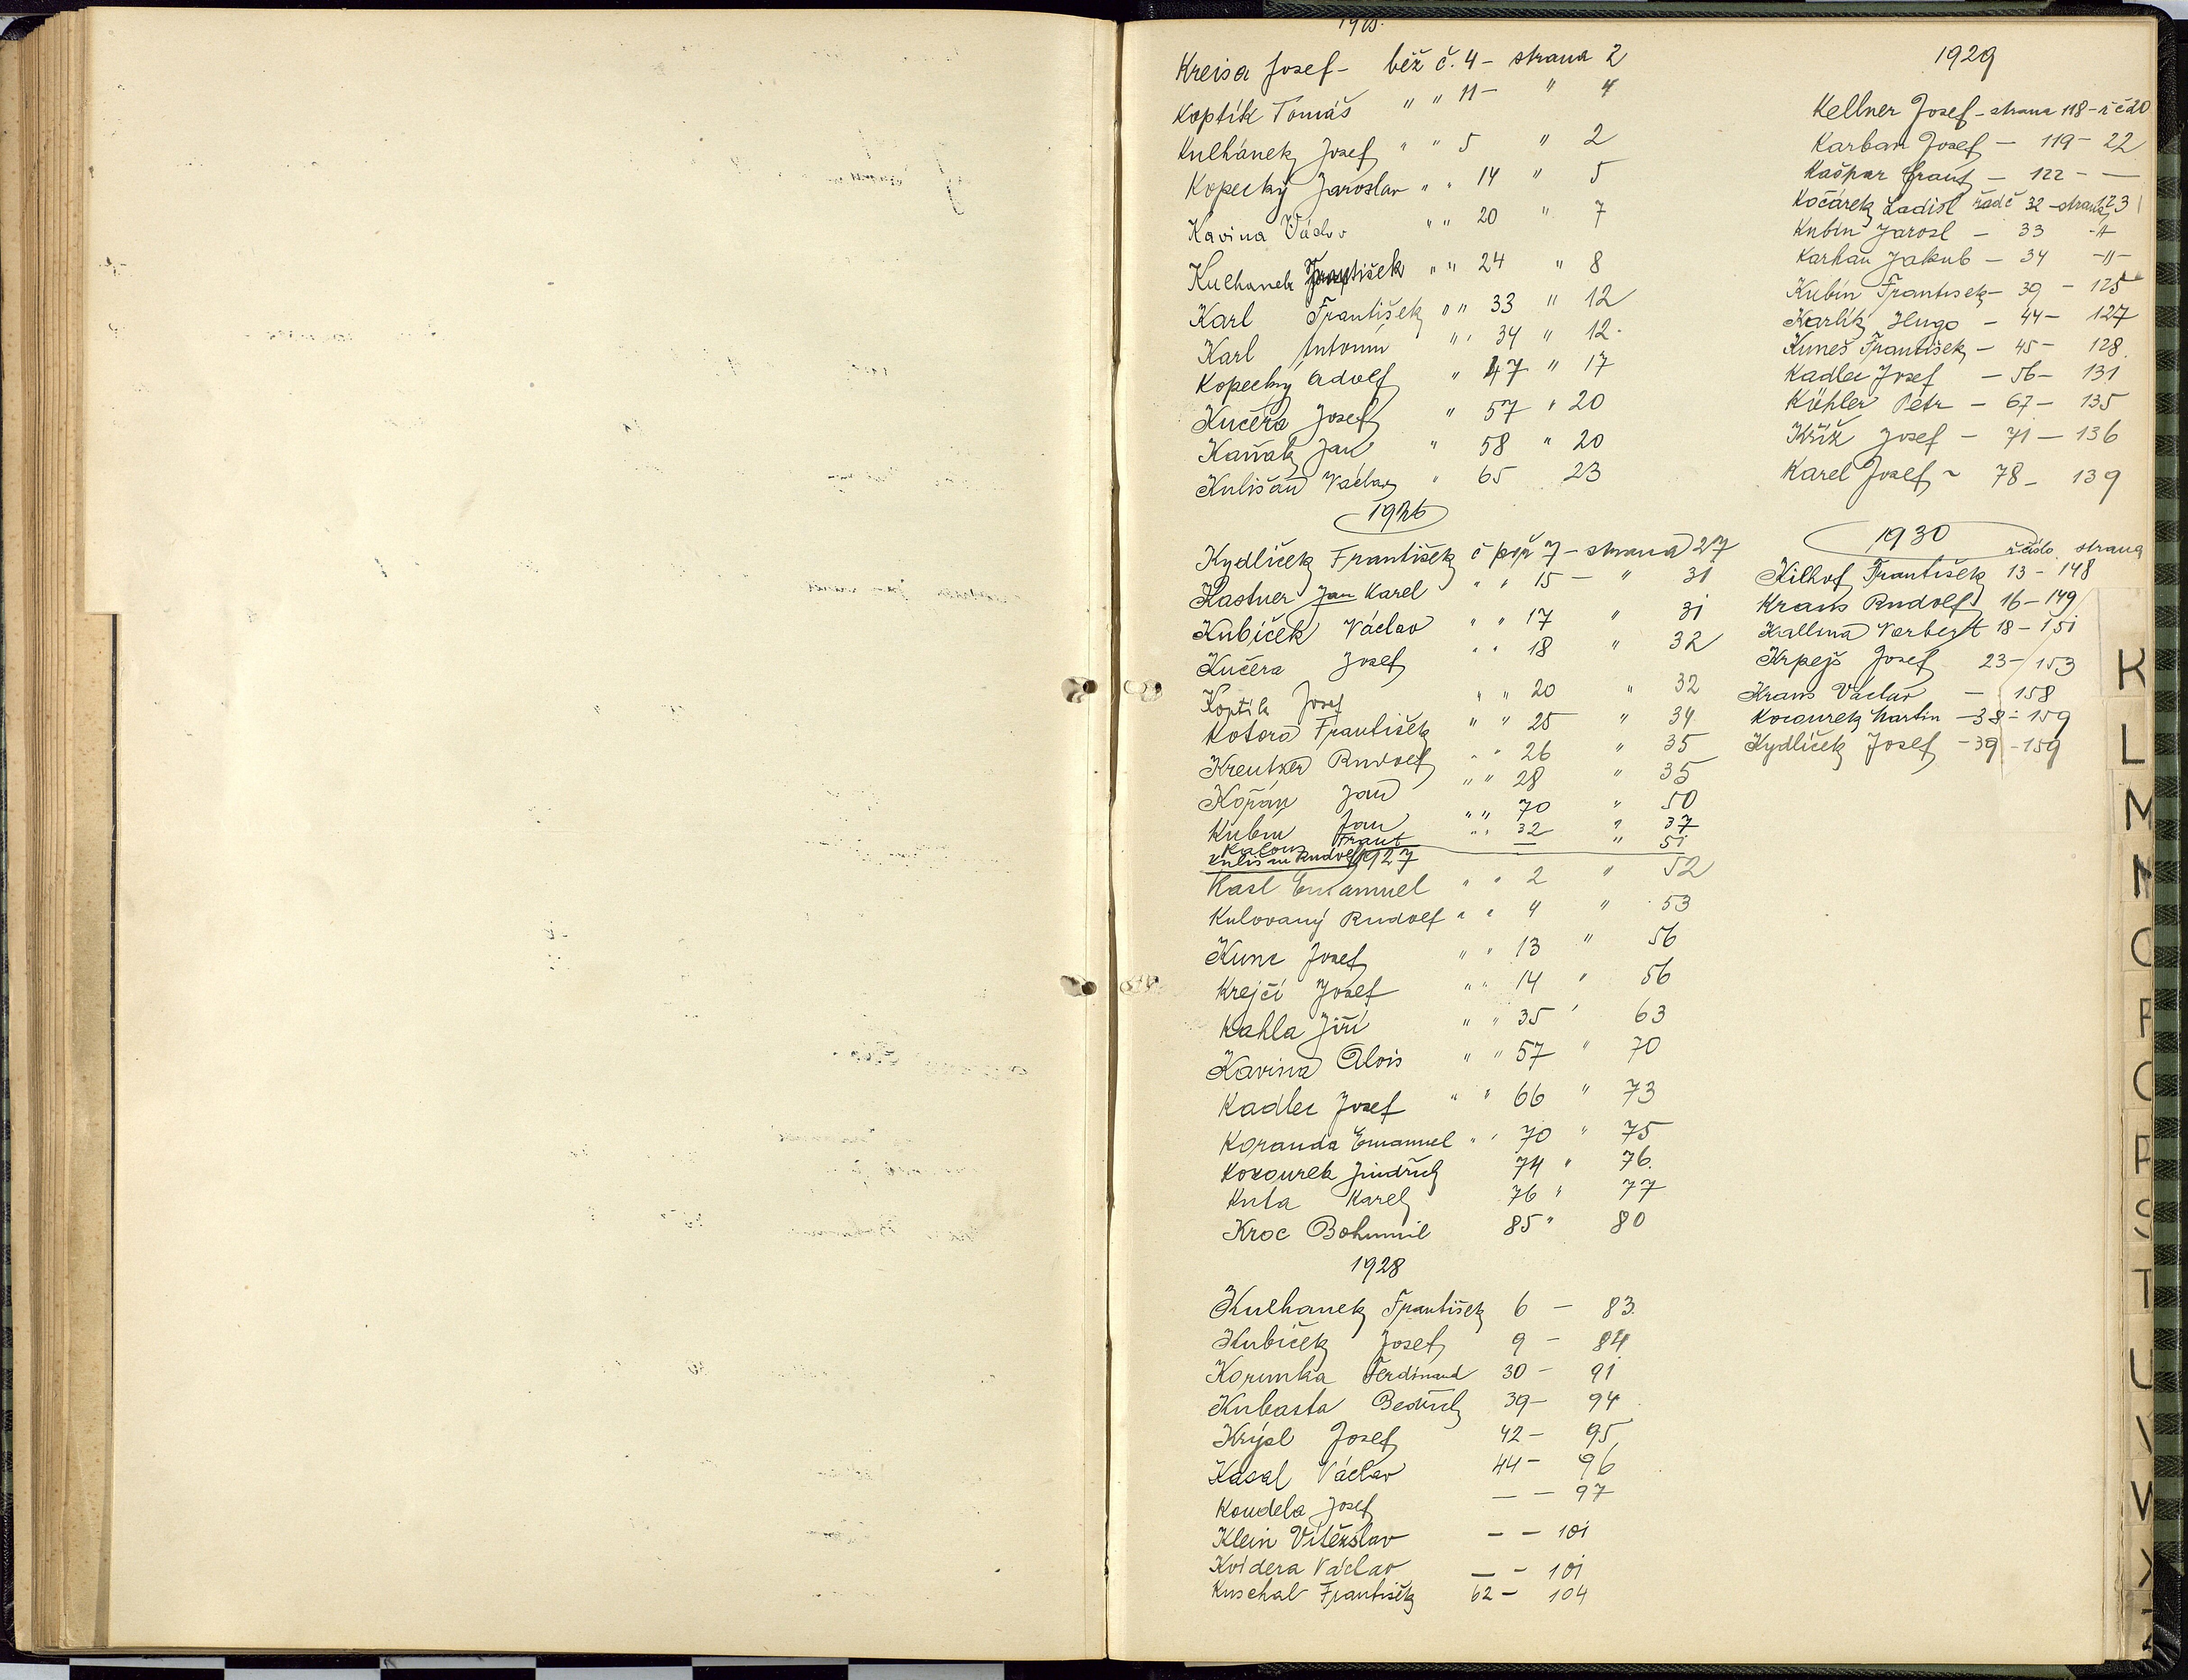 1925.
Kreisa Josef - běž č. 4 - strana 2
Koptík Tomáš " " 11 - " 4
Kulhánek Josef " " 5 " 2
Kopecký Jaroslav " " 14 " 5
Kavina Václav " " 20 " 7
Kulhanek František " " 24 " 8
Karl František " " 33 " 12
Karl Antonín " " 34 " 12.
Kopecký Adolf " 47 " 17
Kučera Josef " 57 " 20
Kaňák Jan " 58 " 20
Kulišan Václav " 65 23
1926
Kydlíček František č poř 7 - strana 27
Kastner Jan Karel " " 15 - " 31
Kubíček Václav " " 17 " 31
Kučera Josef " " 18 " 32
Koptík Josef " " 20 " 32
Kotora František " " 25 " 34
Kreutzer Rudolf " " 26 " 35
Kopán Jan " " 28 " 35
Kubín Jan " " 70 " 50
Kalous Frant " " 32 " 37
Rudolf — " 51
1927
Kasl Emanuel " " 2 " 52
Kulovaný Rudolf " " 4 " 53
Kunc Josef " " 13 " 56
Krejčí Josef " " 14 " 56
Kahla Jiří " " 35 " 63
Kavina Alois " " 57 " 70
Kadlec Josef " " 66 " 73
Koranda Emanuel " " 70 " 75
Kozourek Jindřich 74 " 76.
Kuta Karel 76 " 77
Kroc Bohumil 85 " 80
1928
Kulhanek František 6 - 83.
Kubíček Josef 9 - 84
Korunka Ferdinand 30 - 91
Kubasta Bedřich 39 - 94
Krýsl Josef 42 - 95
Kasal Václav 44 - 96
Koudela Josef — - 97
Klein Vítězslav - - 101
Kvídera Václav — - 101
Kuschal František 62 - 104
1929
Kellner Josef - strana 118 - ř č 20
Karban Josef - 119 - 22
Kašpar Frant - 122 - —
Kočárek Ladisl řadč 32 - strana 123
Kubín Jarosl - 33 -"-
Karhan Jakub - 34 -"-
Kubín František - 39 - 125
Karlík Hugo - 44 - 127
Kuneš František - 45 - 128.
Kadlec Josef - 56 - 131
Köhler Petr - 67 - 135
Kříž Josef - 71 - 136
Karel Josef - 78 - 139
1930
ř. číslo strana
Kilhof František 13 - 148
Kraus Rudolf 16 - 149
Kallina Norbert 18 - 151
Krpejš Josef 23 - 153
Kraus Václav - 158
Kocourek Martin - 38 - 159
Kydlíček Josef - 39 - 159
K
L
M
N